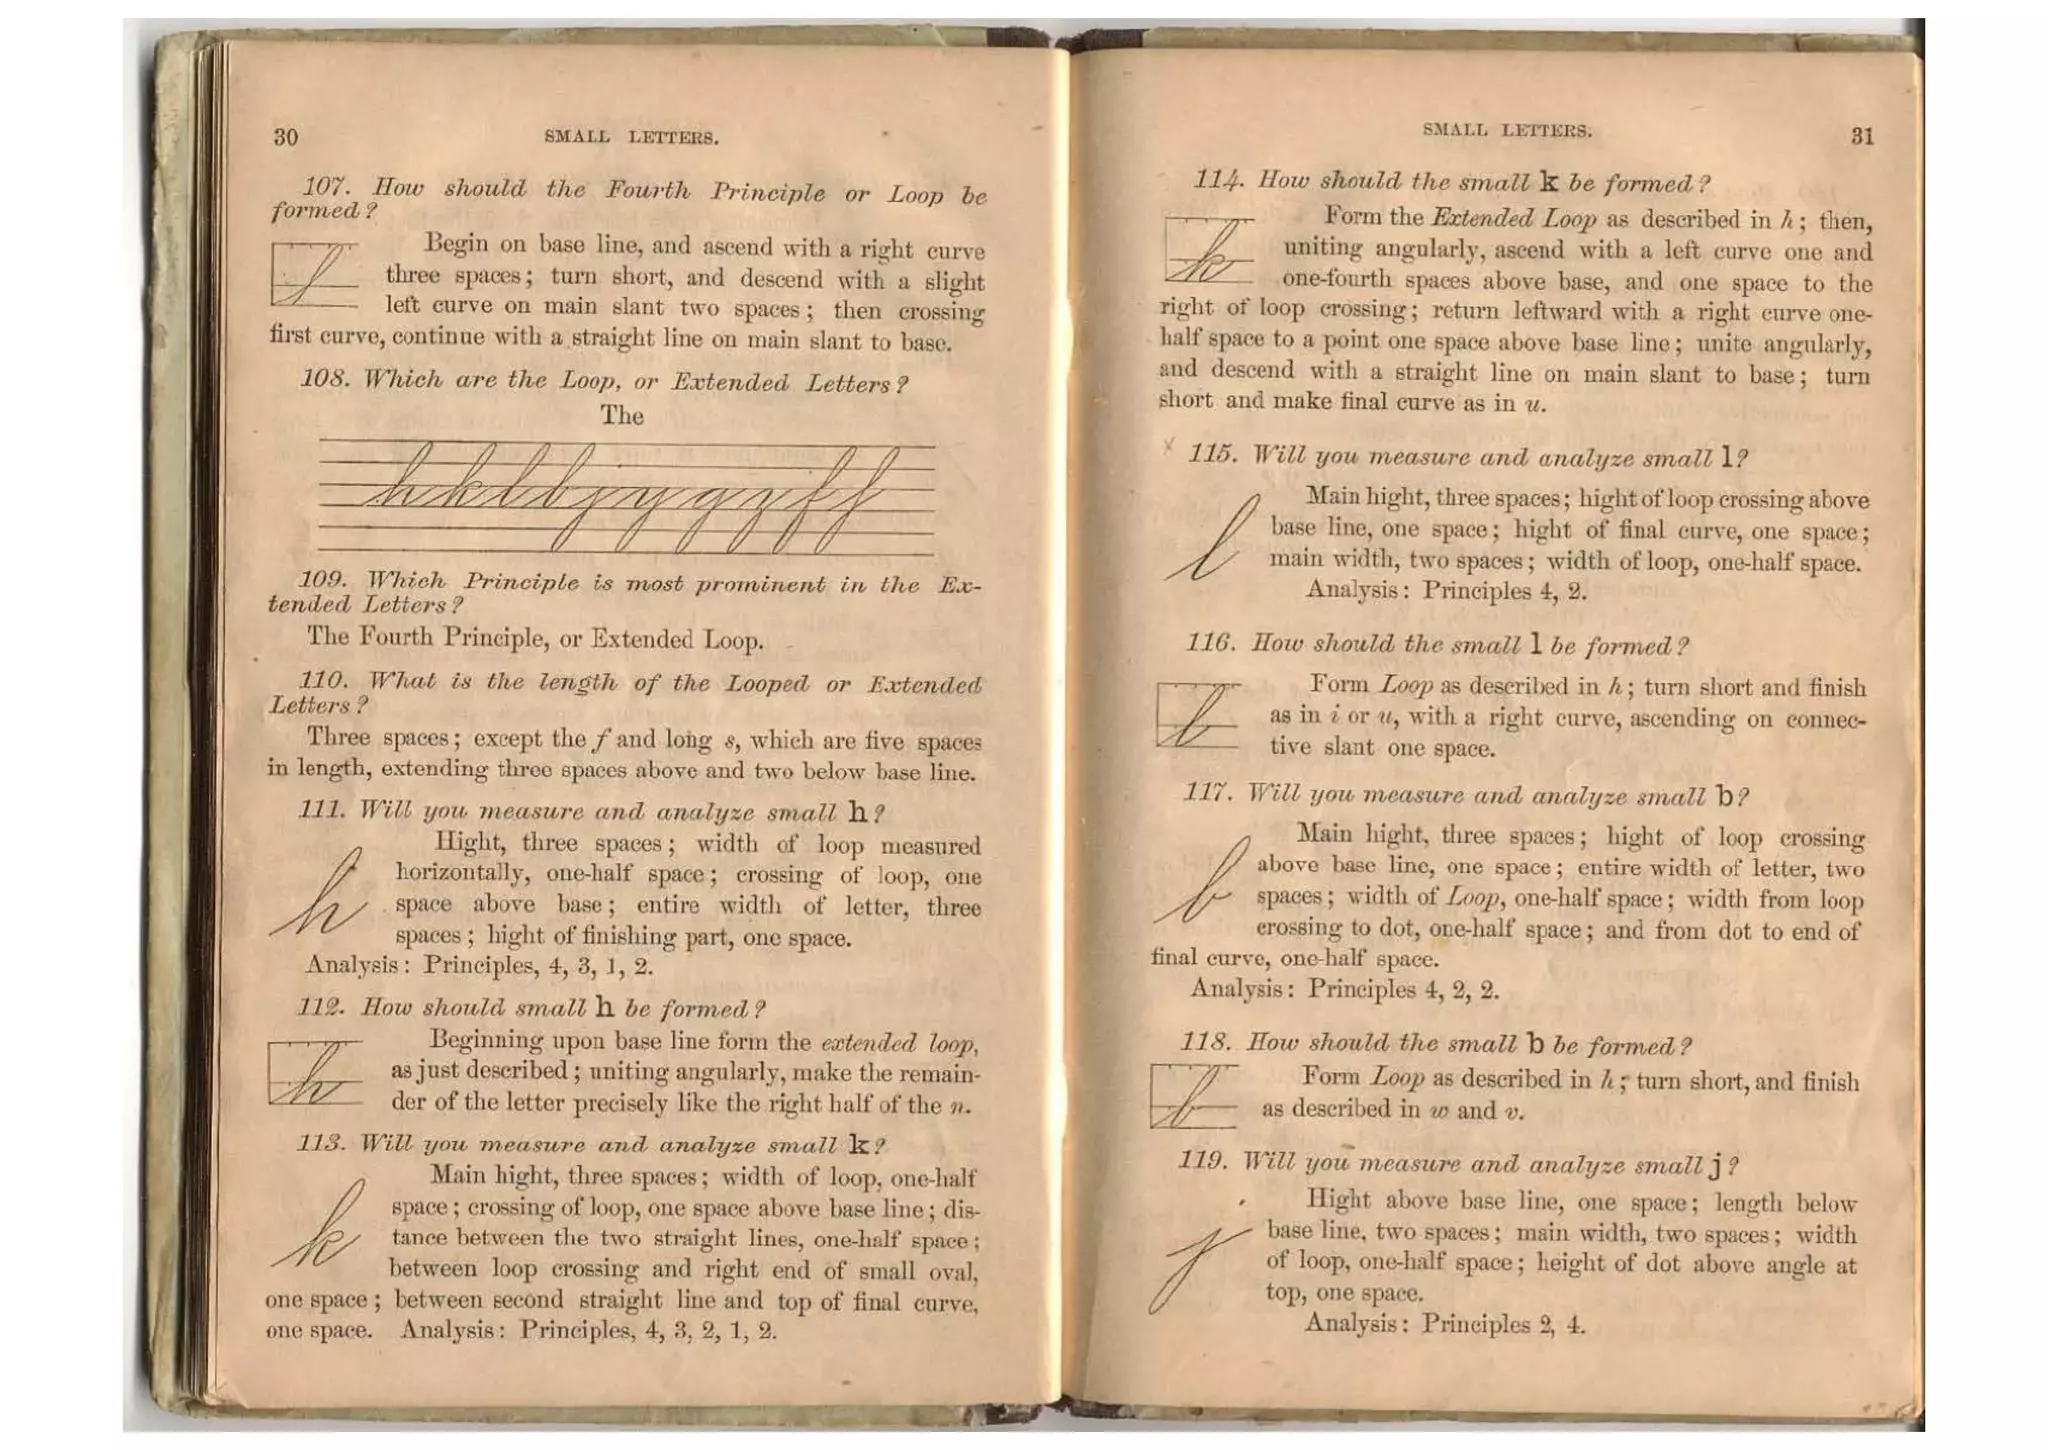 30
SMALL LETTERS.
107. How should the Fourth Principle or Loop be
formed?
Begin on base line, and ascend with a right curve
three spaces; turn short, and descend with a slight
left curve on main slant two spaces; then crossing
first curve, continue with a straight line on main slant to base.
108. Which are the Loop, or Extended Letters?
The
h k l b j y g z f f
109. Which Principle is most prominent in the Ex-
tended Letters?
The Fourth Principle, or Extended Loop.
110. What is the length of the Looped or Extended
Letters?
Three spaces; except the f and long s, which are five spaces
in length, extending three spaces above and two below base line.
111. Will you measure and analyze small h?
Hight, three spaces; width of loop measured
horizontally, one-half space; crossing of loop, one
space above base; entire width of letter, three
spaces; hight of finishing part, one space.
h
Analysis: Principles, 4, 3, 1, 2.
112. How should small h be formed?
Beginning upon base line form the extended loop,
as just described; uniting angularly, make the remain-
der of the letter precisely like the right half of the n.
h
113. Will you measure and analyze small k?
Main hight, three spaces; width of loop, one-half
space; crossing of loop, one space above base line; dis-
tance between the two straight lines, one-half space;
between loop crossing and right end of small oval,
k
one space; between second straight line and top of final curve,
one space. Analysis: Principles, 4, 3, 2, 1, 2.
SMALL LETTERS.
31
114. How should the small k be formed?
Form the Extended Loop as described in h; then,
uniting angularly, ascend with a left curve one and
one-fourth spaces above base, and one space to the
k
right of loop crossing; return leftward with a right curve one-
half space to a point one space above base line; unite angularly,
and descend with a straight line on main slant to base; turn
short and make final curve as in u.
115. Will you measure and analyze small l?
Main hight, three spaces; hight of loop crossing above
base line, one space; hight of final curve, one space;
main width, two spaces; width of loop, one-half space.
l
Analysis: Principles 4, 2.
116. How should the small l be formed?
Form Loop as described in h; turn short and finish
as in i or u, with a right curve, ascending on connec-
tive slant one space.
l
117. Will you measure and analyze small b?
Main hight, three spaces; hight of loop crossing
above base line, one space; entire width of letter, two
spaces; width of Loop, one-half space; width from loop
crossing to dot, one-half space; and from dot to end of
b
final curve, one-half space.
Analysis: Principles 4, 2, 2.
118. How should the small b be formed?
Form Loop as described in h; turn short, and finish
as described in w and v.
b
119. Will you measure and analyze small j?
Hight above base line, one space; length below
base line, two spaces; main width, two spaces; width
of loop, one-half space; height of dot above angle at
top, one space.
j
Analysis: Principles 2, 4.